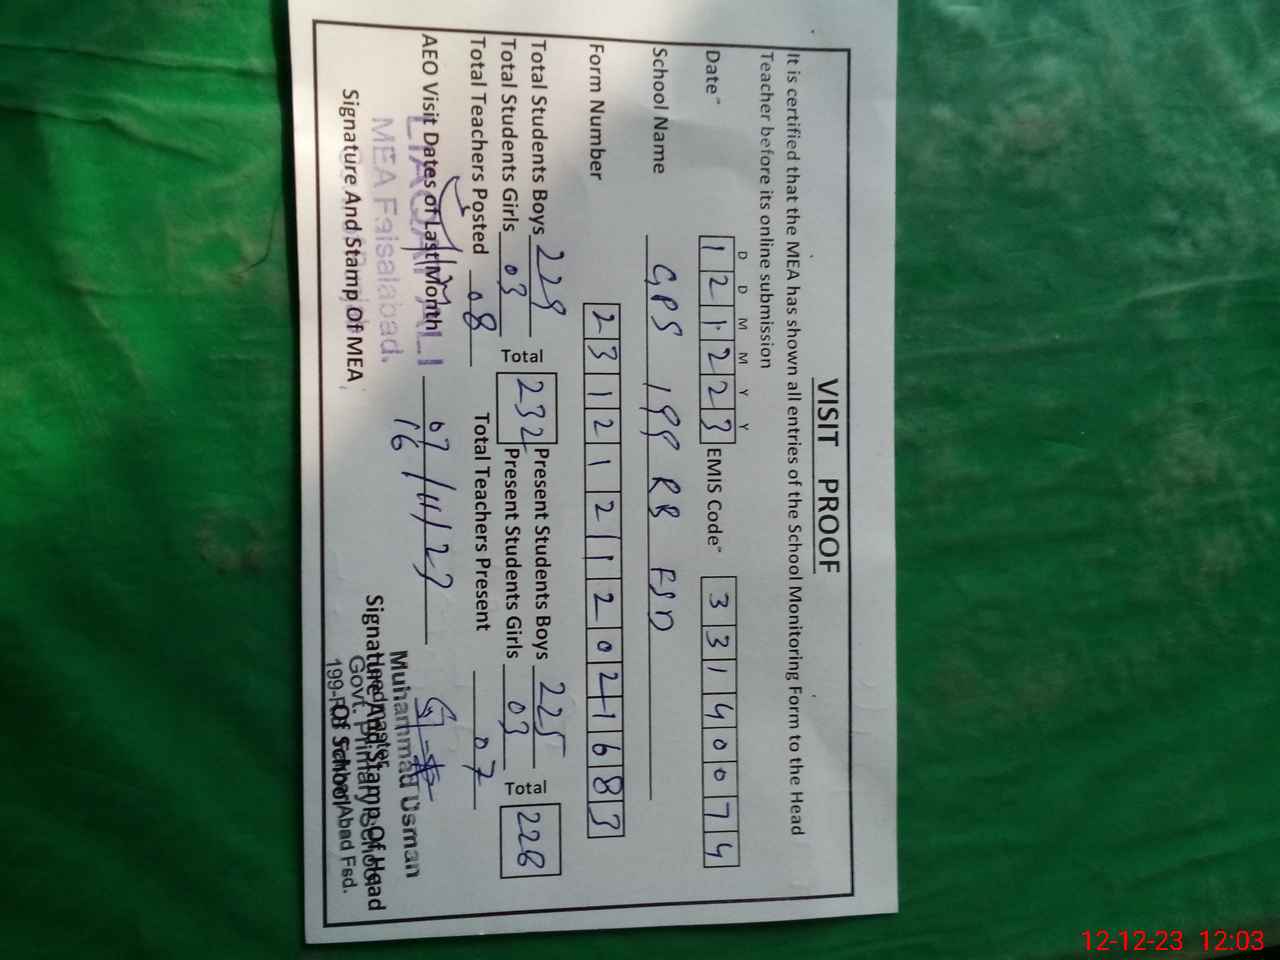 VISIT PROOF
It is certified that the MEA has shown all entries of the School Monitoring Form to the Head
Teacher before its online submission
D D M M Y Y
Date" 1 2 1 2 2 3 EMIS Code" 3 3 1 4 0 0 7 4
School Name GPS 199 RB FSD
Form Number 2 3 1 2 1 2 1 1 2 0 2 1 6 8 3
Total Students Boys 229 Total 232 Present Students Boys 225 Total 228
Total Students Girls 03 Present Students Girls 03
Total Teachers Posted 08 Total Teachers Present 07
AEO Visit Dates of Last Month 07 16 /11/23
LIAQAT ALI
MEA Faisalabad.
Signature And Stamp Of MEA
Muhammad Usman
Signature And Stamp Of Head
Of School
Headmaster
Govt. Primary School
199-RB Abad Fsd.
12-12-23 12:03